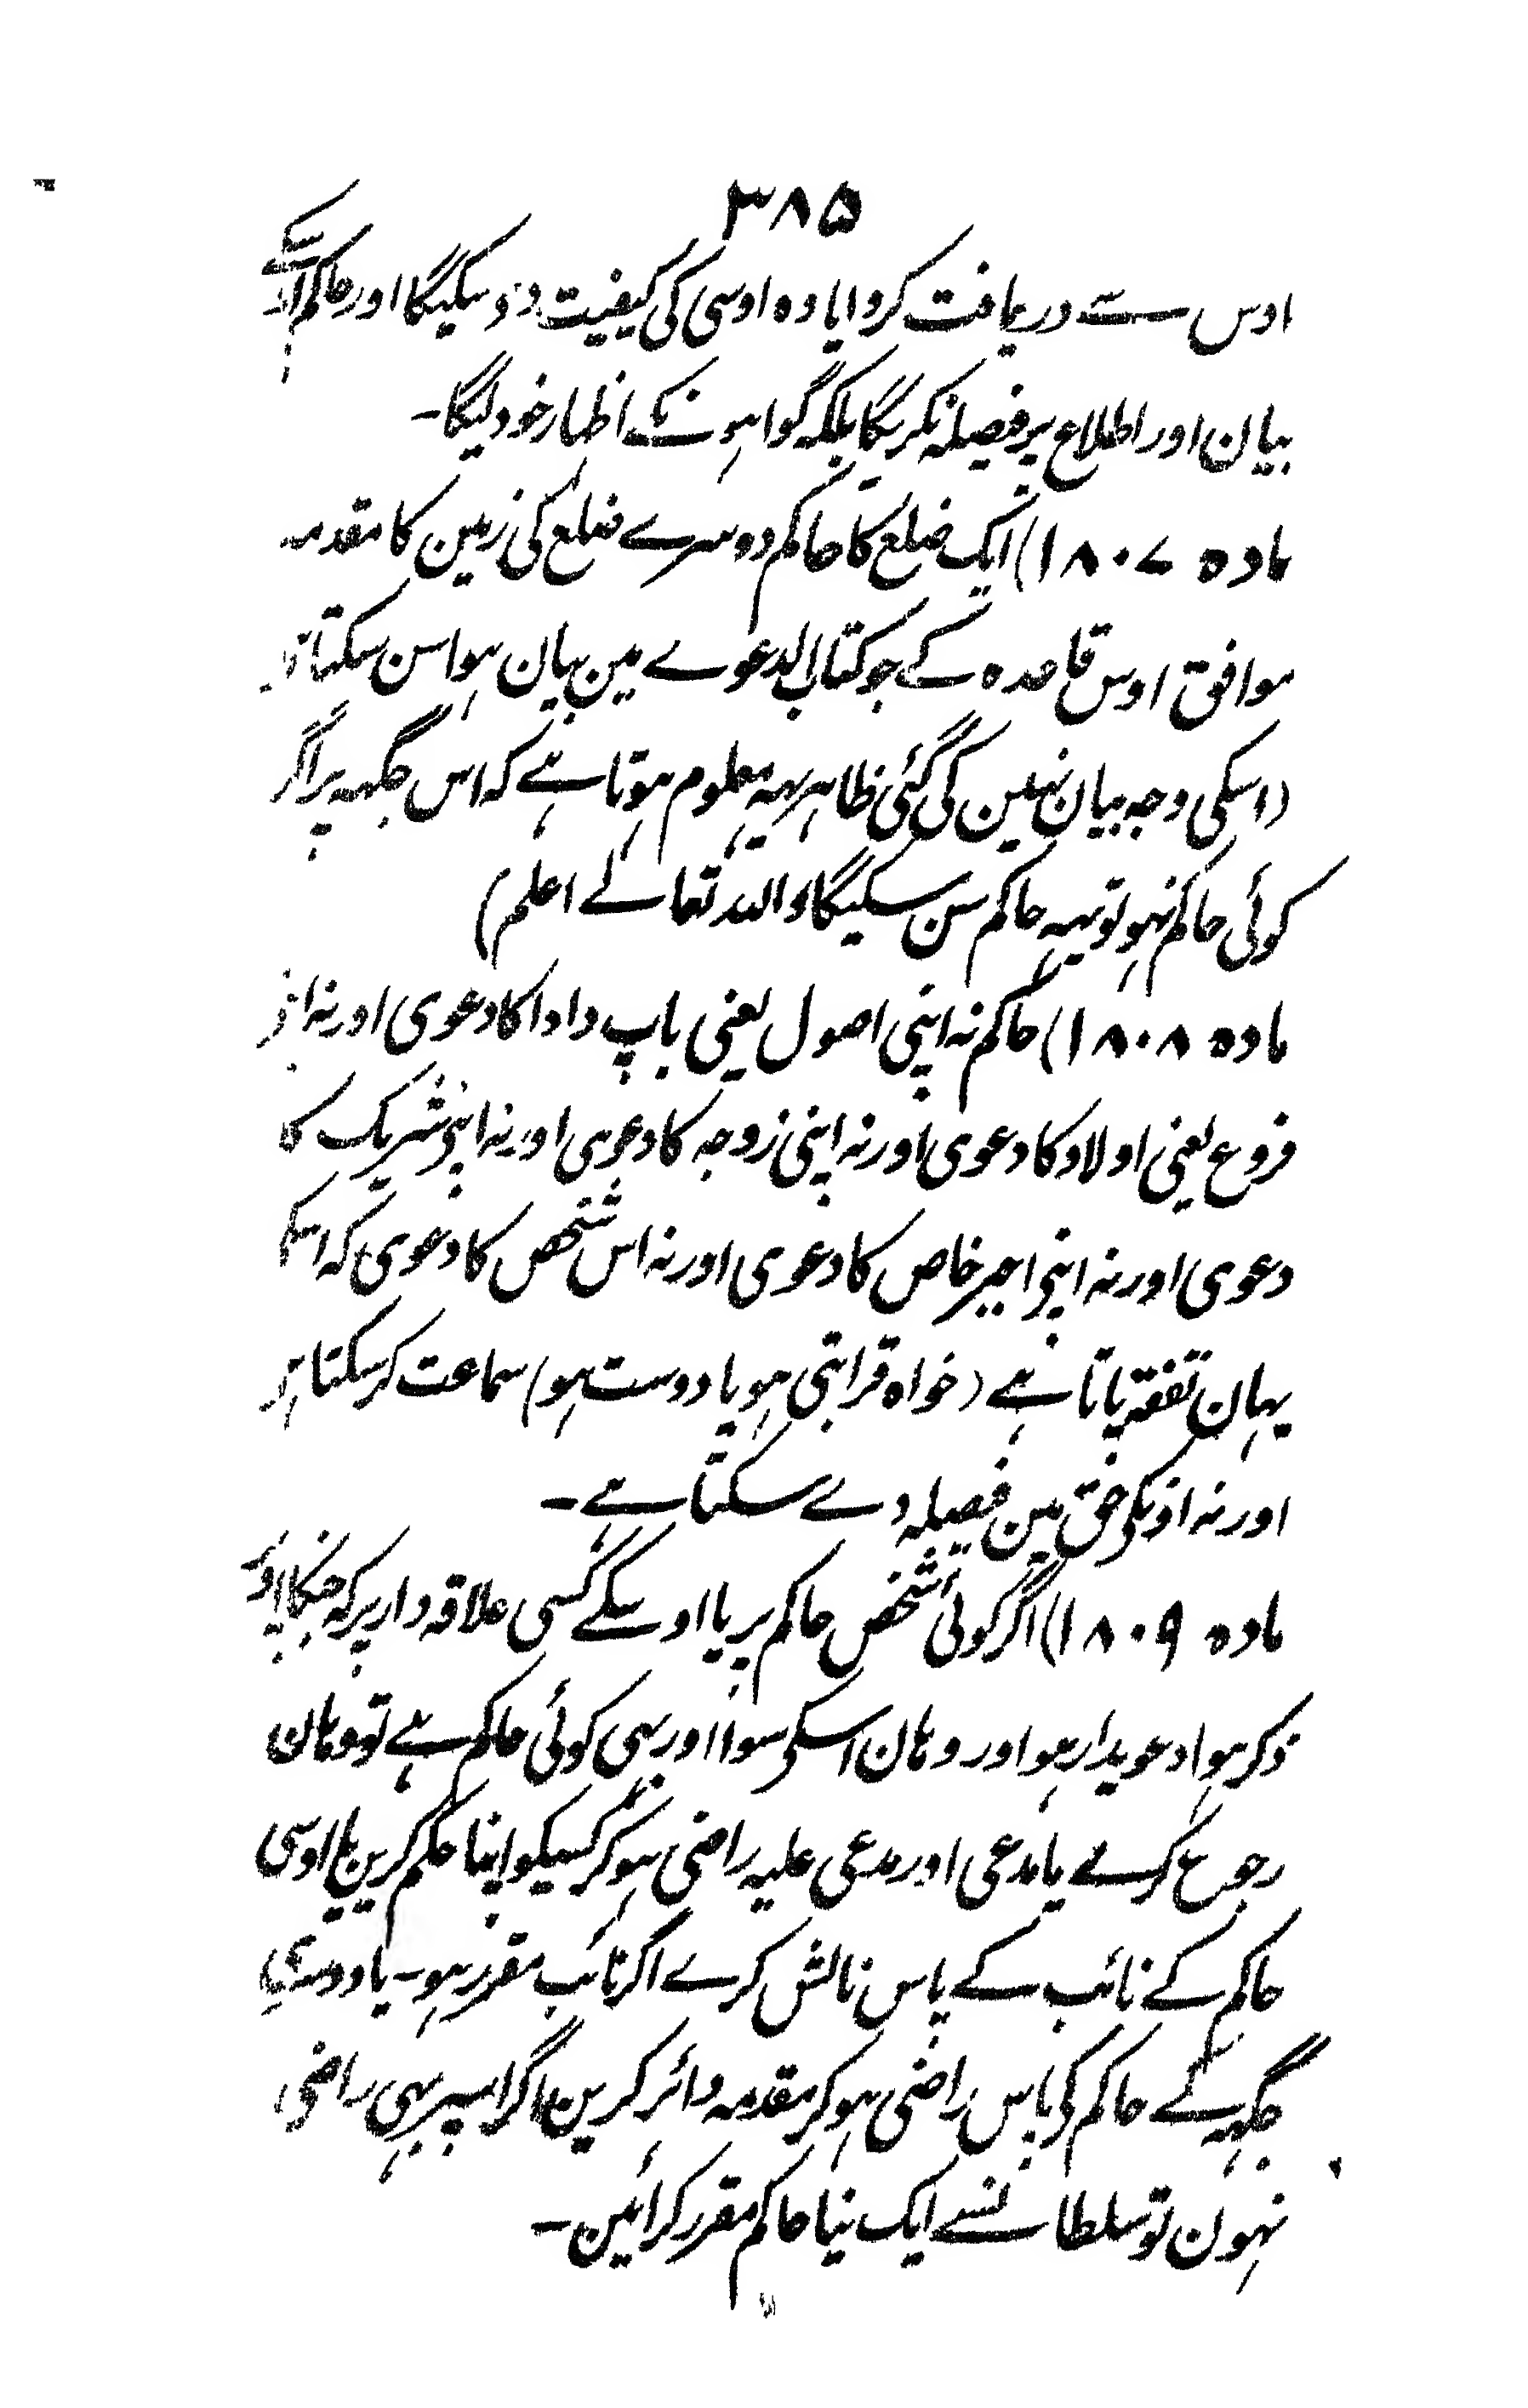 ۳۸۵
اوس سے دریافت کروایا وہ اوسی کی کیفیت دیکیگا اور حاکم اوسکے
بیان اور اطلاع پر فیصلہ نکریگا بلکہ گواہونکے اظہار خود لیگا۔
مادہ ۱۸۰۷) ایک ضلع کا حاکم دوسرے ضلع کی زمین کا مقدمہ
موافق اوس قاعدہ کے جو کتاب الدعوے مین بیان ہوا سن سکتا
(اسکی وجہ بیان نہین کی گئی ظاہر یہہ معلوم ہوتا ہے کہ اس جگہہ پر اگر
کوئی حاکم نہو تو یہہ حاکم سن سکیگا واللہ تعالے اعلم)
مادہ ۱۸۰۸) حاکم نہ اپنی اصول یعنی باپ دادا کا دعوی اور نہ
فروع یعنی اولاد کا دعوی اور نہ اپنی زوجہ کا دعوی اور نہ اپنی شریک کا
دعوی اور نہ اپنی اجیر خاص کا دعوی اور نہ اس شخص کا دعوی کہ اسکا
یہان نفقہ پاتا ہے (خواہ قرابتی ہو یا دوست ہو) سماعت کرسکتا ہے
اور نہ اونکی حق مین فیصلہ دے سکتا ہے۔
مادہ ۱۸۰۹) اگر کوئی شخص حاکم پر یا اوسکے کسی علاقہ دار پر کہ جنکا اوپر
ذکر ہوا دعویدار ہو اور وہان اسکی سوا اور بہی کوئی حاکم ہے تو وہان
رجوع کرے یا مدعی اور مدعی علیہ راضی ہوکر کسیکو اپنا حکم کرین یا اوسی
حاکم کے نائب کے پاس نالش کرے اگر نائب مقرر ہو۔ یا دوسری
جگہہ کے حاکم کی پاس راضی ہوکر مقدمہ دائر کرین اگر اسپر بہی راضی
نہون تو سلطانسے ایک نیا حاکم مقرر کرائین۔